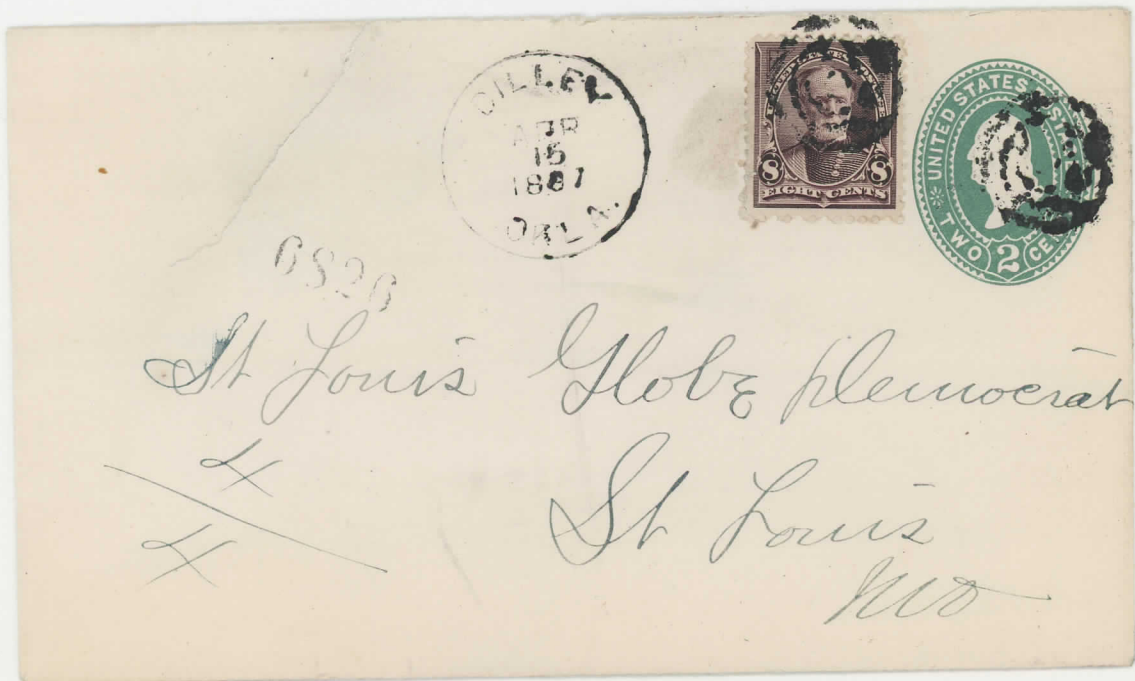 DILLEY
APR
15
1897
OKLA.
8 8
EIGHT CENTS
UNITED STATES
TWO 2 CEN
6826
St Louis Globe Democrat
4
4
St Louis
Mo